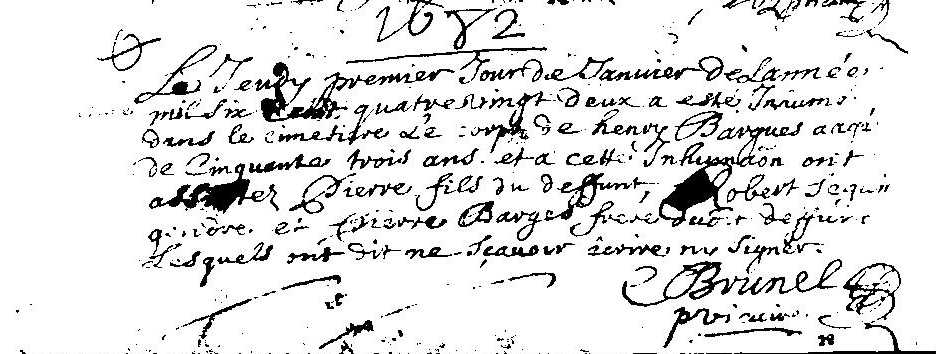 1682
Le Jeudy premier Jour de Janvier de Lannée
mil six cent quatre vingt deux a esté Inhumé
dans le cimetiere Le corps de henry Bargues aagé
de Cinquante trois ans et a cette Inhumaõn ont
assistez Pierre fils du deffunt, Robert
gendre et Pierre Barges frere dud.t deffunt
Lesquels ont dit ne scavoir écrire ny signer.
Brunel